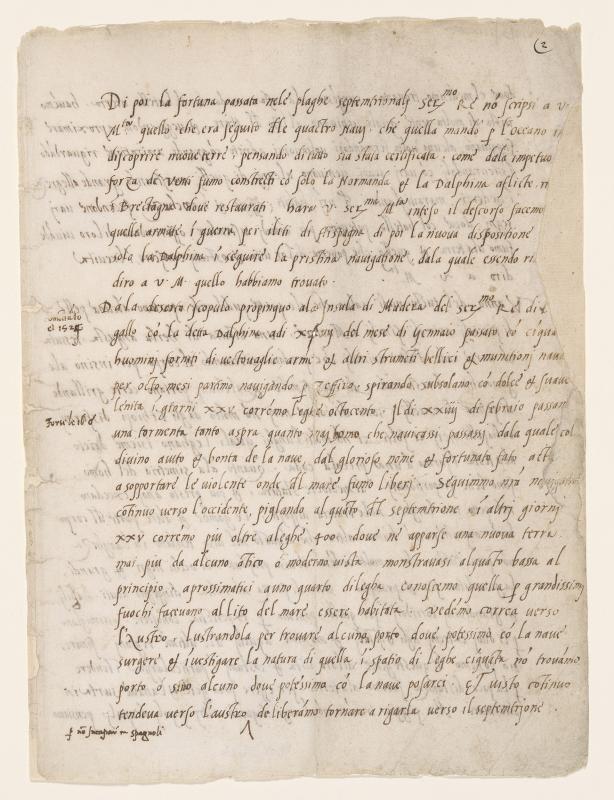 2
Di poi la fortuna passata nele plaghe septemtrionalj Ser^mo Re nõ scripsi a v
M^ta quello che era seguito dle quattro Nauj. che quella mandò p l'Oceano
discoprire nuoue terre, pensando di tutto sia stata certificata. come dala impetuo
forza de Venti fumo constretti cõ solo la Normanda & la Dalphina aflicte
Brectagna doue restaurati harà v. Ser^ma M^ta inteso il descorso facemo
quelle armate i guerra per i liti di Spagna di poi la nuoua dispositione
solo la Dalphina i seguire la pristina nauigatione, dala quale essendo ri
diro a v. M. quello habbiamo trovato.
Dala deserto scopulo propinquo ala Insula di Madera del Ser^mo Re di
gallo cõ la detta Dalphina adi del mese di Gennaio passato cõ
huominj forniti di uectouaglie arme & altri strumeti bellici & munitionj
per octo mesi partimo nauigãdo p Zeffiro, spirando subsolano cõ dolce & suaue
lenità i giorni XXV corrẽmo leghe octocento. Il di XXiiij di febraio
una tormenta tanto aspra quanto maj homo che nauicassi passassj. dala quale col
divino auto & bontà de la nave, dal glorioso nome & fortunato fato
a sopportare le violente onde dl mare fumo liberj. Seguimmo nrã
cõtinuo verso l'occidente, pigliando alquãto dl septemtrione i altri giorni
XXV corrẽmo piu oltre aleghe 400 doue ne apparse una nuova terra
mai piu da alcuno ãtico o moderno uista. monstrauasi alquãto bassa al
principio, aprossimatici a uno quarto di legha conoscemo quella p grandissimj
fuochi faceuano al lito del mare essere habitata. vedemo correa verso
l'Austro. lustrandola per trovare alcuno porto doue potessimo cõ la naue
surgere & iuestigare la natura di quella, i spatio di leghe ciquãta nõ trouãmo
porto o sino alcuno doue potessimo cõ la naue posarci. Et uisto cõtinuo
tendeua verso l'austro deliberamo tornare a rigarla verso il septemtrione.
p nõ spagnoli